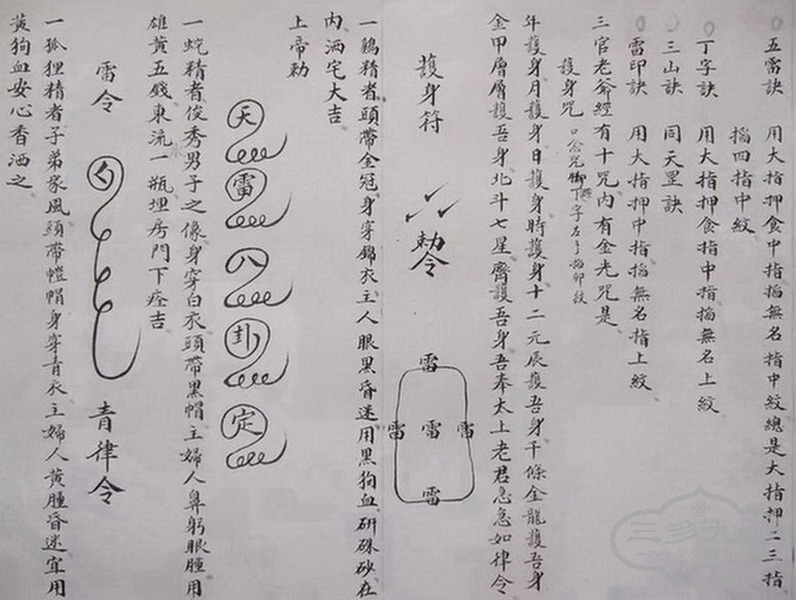 五雷訣 用大指押食中指掐無名指中紋總是大指押二三指
掐四指中紋
丁字訣 用大指押食指中指掐無名上紋
三山訣 同天罡訣
雷印訣 用大指押中指掐無名指上紋
三官老爺經有十咒內有金光咒是
護身咒 口念咒脚丁字左手掐卯紋
年護身月護身日護身時護身十二元辰護吾身千條金龍護吾身
金甲層層護吾身北斗七星齊護吾身吾奉太上老君急急如律令
護身符
勅令
雷
雷 雷 雷
雷
一鷄精者頭帶金冠身穿錦衣主人眼黑昏迷用黑狗血研硃砂在
內洒宅大吉
上帝勅
天
雷
八
卦
定
一蛇精者俊秀男子之像身穿白衣頭帶黑帽主婦人鼻躬眼腫用
雄黃五錢東流一瓶埋房門下痊吉
雷令
青律令
一狐狸精者子弟家風頭帶𢄙帽身穿青衣主婦人黃腫昏迷宜用
黃狗血安心香洒之